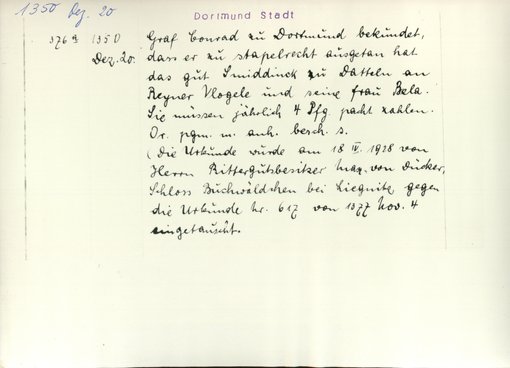 1350 Dez. 20
Dortmund Stadt
376a 1350 Graf Conrad zu Dortmund bekundet,
Dez. 20. dass er zu stapelrecht ausgetan hat
das gut Smiddinck zu Datteln an
Reyner Vlogele und seine frau Bela.
Sie müssen jährlich 4 Pfg. pacht zahlen.
Or. pgm. m. anh. besch. s.
(Die Urkunde wurde am 18 IV. 1928 von
Herrn Rittergutsbesitzer Max. von Dücker,
Schloss Buchwäldchen bei Liegnitz gegen
die Urkunde Nr. 617 von 1377 Nov. 4
eingetauscht.